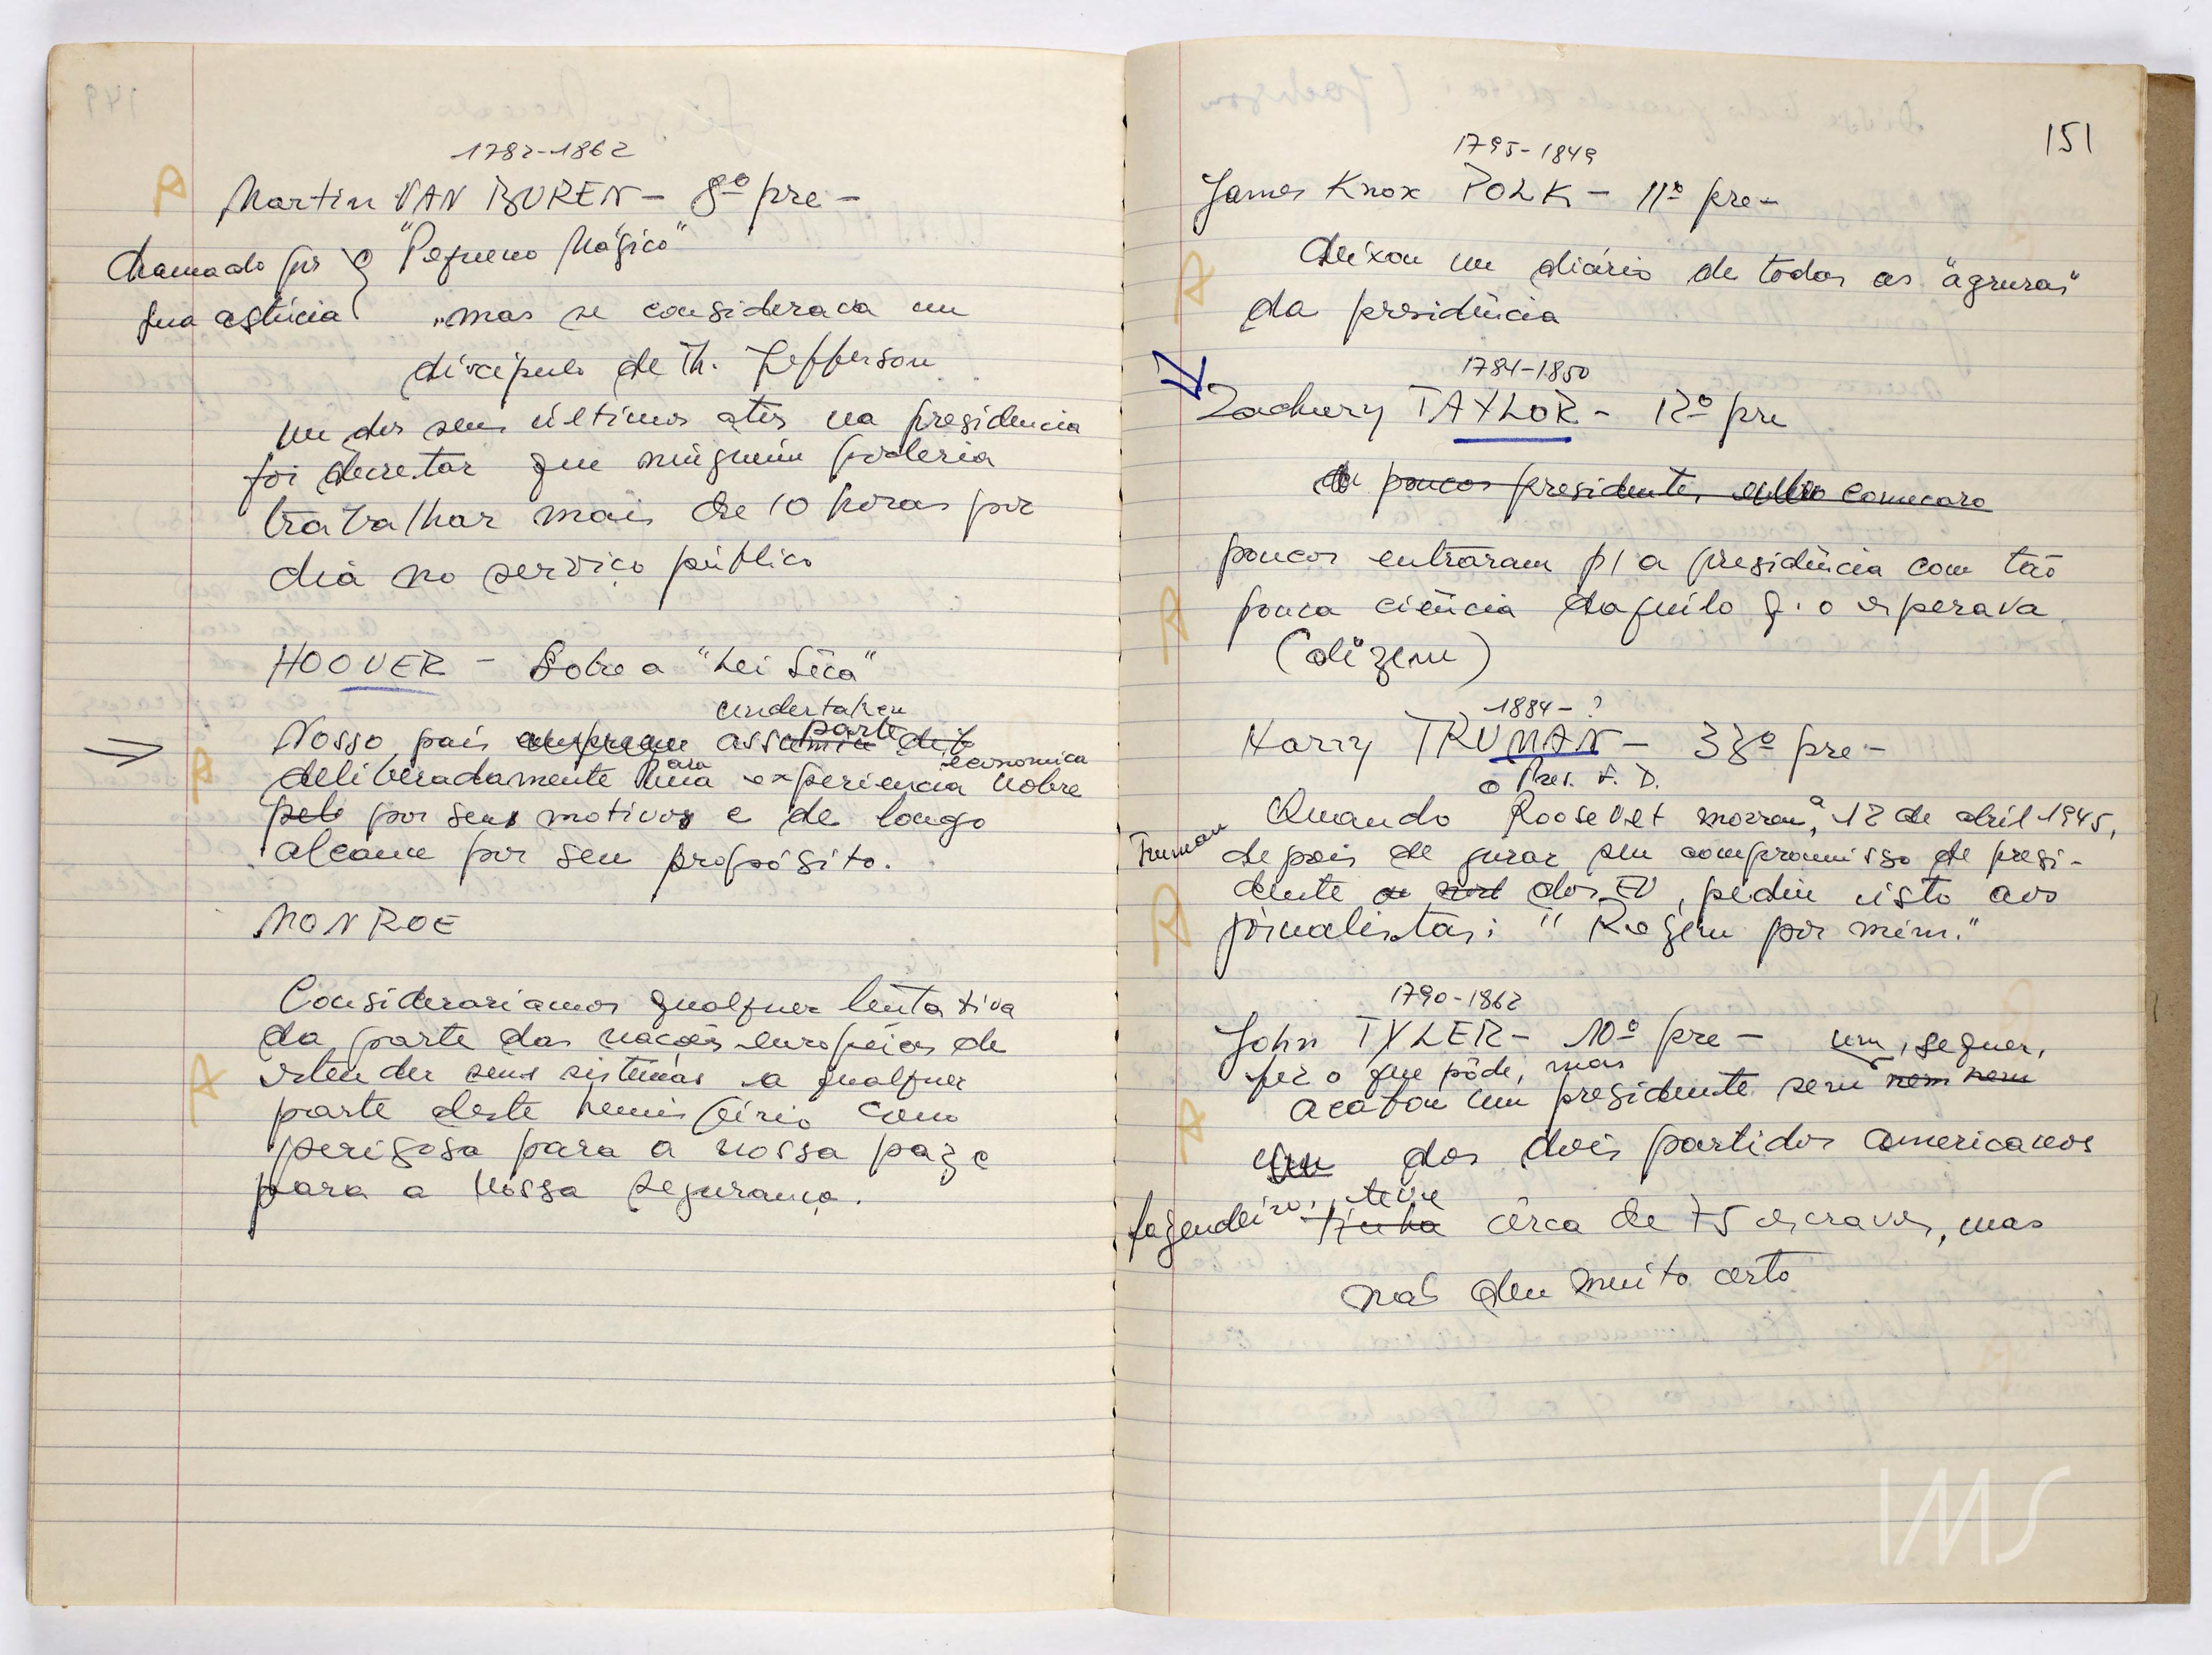 1782-1862
Martin VAN BUREN - 8º pre -
chamado por } o "Pequeno Mágico"
sua astúcia
mas se considerava um
discípulo de Th. Jefferson
um dos seus últimos atos na presidencia
foi decretar que ninguém poderia
trabalhar mais de 10 horas por
dia no serviço público
HOOVER - Sobre a "Lei Sêca"
undertaken
Nosso país assumiu parte
deliberadamente uma experiencia economica nobre
pelo por seus motivos e de longo
alcance por seu propósito.
MONROE
Considerariamos qualquer tentativa
da parte das nações européias de
estender seus sistemas a qualquer
parte deste hemisfério como
perigosa para a nossa paz e
para a nossa segurança.
151
1795-1849
James Knox POLK - 11º pre -
deixou um diário de todas as "agruras"
da presidência
1784-1850
Zachary TAYLOR - 12º pre
poucos presidentes comecaro
poucos entraram p/ a presidência com tão
pouca ciência daquilo q. o esperava
(dizem)
1884-?
Harry TRUMAN - 33º pre -
o Pres. F. D.
Quando Roosevelt morreu, a 12 de abril 1945,
Truman depois de jurar seu compromisso de presi-
dente dos EU, pediu isto aos
jornalistas: "Rezem por mim."
1790-1862
John TYLER - 10º pre -
fez o que pôde, mas um, sequer,
acabou um presidente sem nem nem
um dos dois partidos americanos
fazendeiro, teve
tinha cêrca de 75 escravos, mas
não deu muito certo
IMS